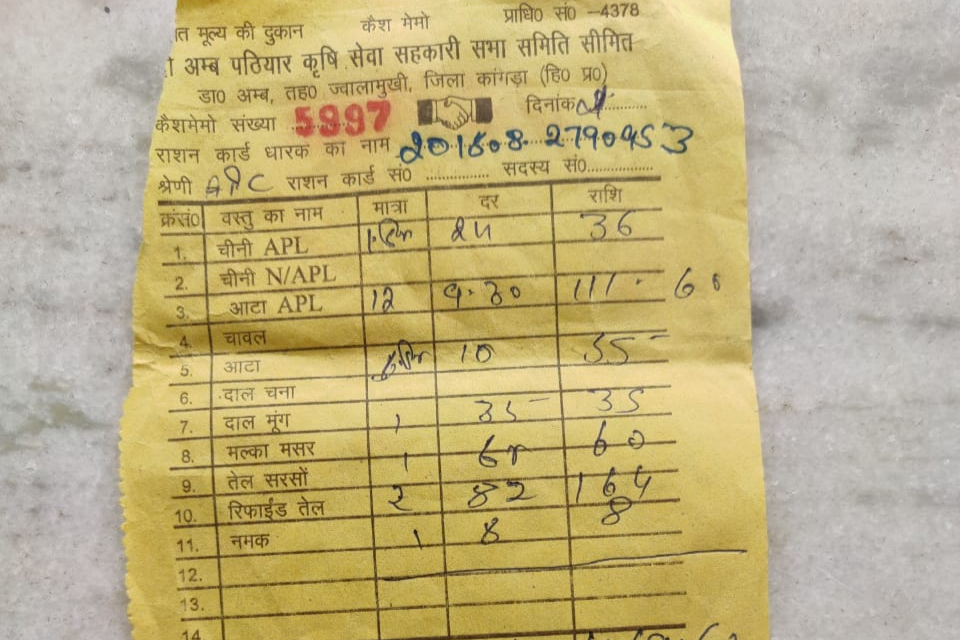 मूल्य की दुकान कैश मेमो प्राधि0 सं0 –4378
अम्ब पठियार कृषि सेवा सहकारी सभा समिति सीमित
डा0 अम्ब, तह0 ज्वालामुखी, जिला कांगड़ा (हि0 प्र0)
कैशमेमो संख्या 5997 दिनांक
राशन कार्ड धारक का नाम 201508-2790953
श्रेणी APL राशन कार्ड सं0 ............... सदस्य सं0...............
क्रंसं0 वस्तु का नाम मात्रा दर राशि
1. चीनी APL 24 36
2. चीनी N/APL
3. आटा APL 12 9.30 111.60
4. चावल
5. आटा 10 55
6. दाल चना
7. दाल मूंग 1 35 35
8. मल्का मसर 1 60 60
9. तेल सरसों 2 82 164
10. रिफाईड तेल
11. नमक 1 8 8
12.
13.
14